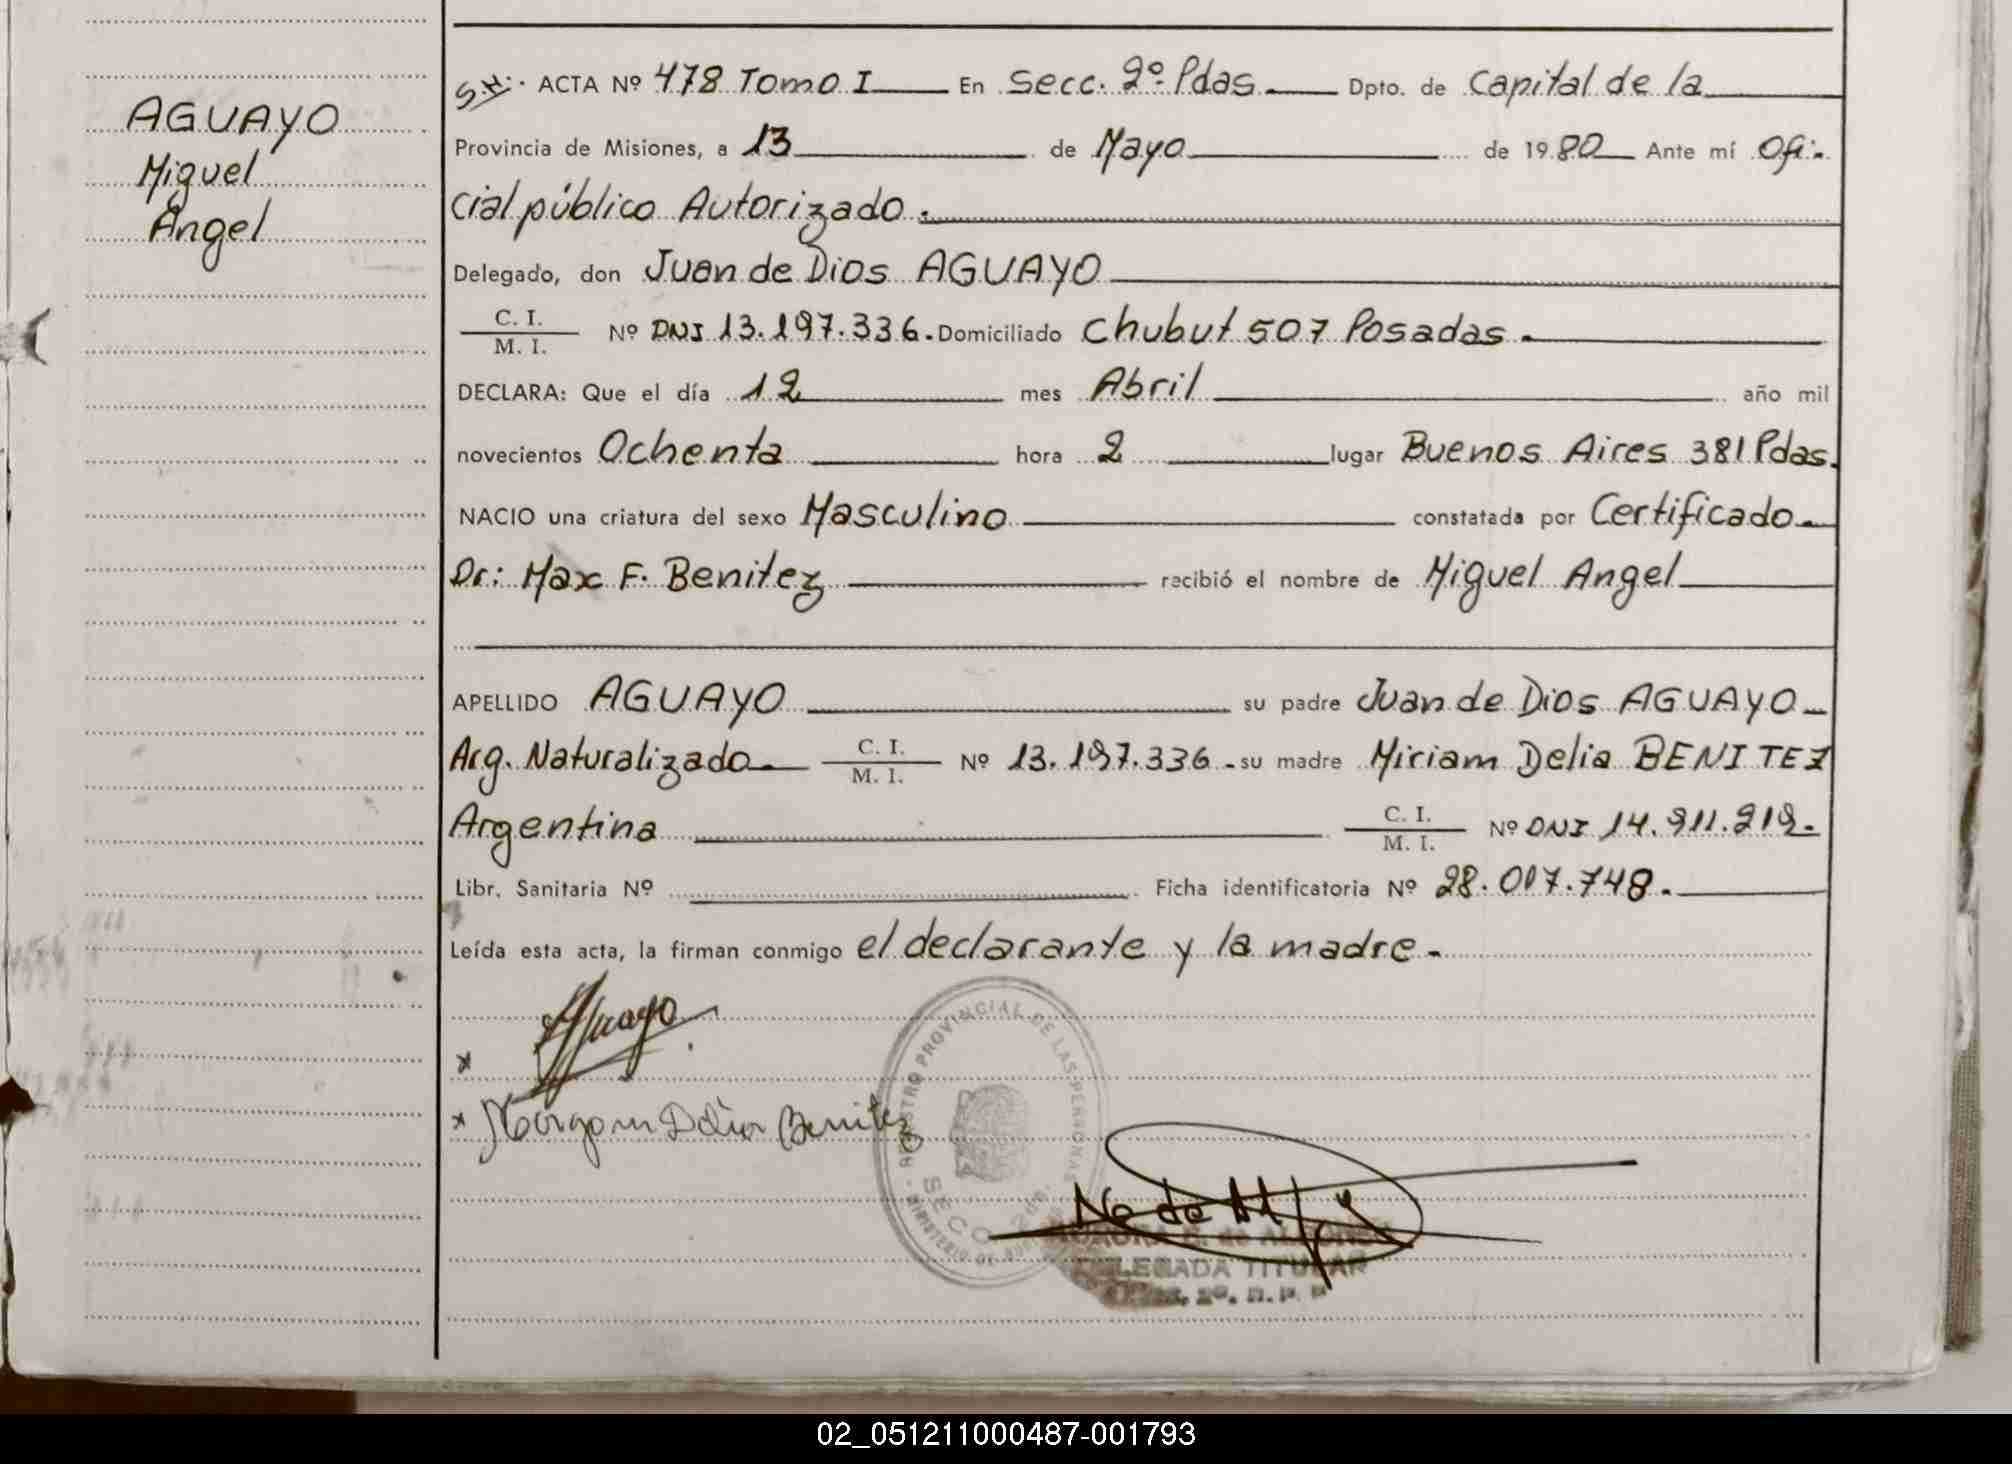 AGUAYO
Miguel
Angel
S.H. ACTA Nº 478 Tomo I En Secc. 2º Pdas. Dpto. de Capital de la
Provincia de Misiones, a 13 de Mayo de 1980 Ante mí Ofi-
cial público Autorizado.
Delegado, don Juan de Dios AGUAYO
C. I.
M. I. Nº DNI 13.197.336. Domiciliado Chubut 507 Posadas.
DECLARA: Que el día 12 mes Abril año mil
novecientos Ochenta hora 2 lugar Buenos Aires 381 Pdas.
NACIO una criatura del sexo Masculino constatada por Certificado
Dr: Max F. Benitez recibió el nombre de Miguel Angel
APELLIDO AGUAYO su padre Juan de Dios AGUAYO
Arg. Naturalizado C. I.
M. I. Nº 13.197.336. su madre Miriam Delia BENITEZ
Argentina C. I.
M. I. Nº DNI 14.911.212.
Libr. Sanitaria Nº Ficha identificatoria Nº 28.017.748.
Leída esta acta, la firman conmigo el declarante y la madre.
x Aguayo
x Delia Benitez
REGISTRO PROVINCIAL DE LAS PERSONAS
MINISTERIO DE
SECC 2da.
DELEGADA TITULAR
02_051211000487-001793